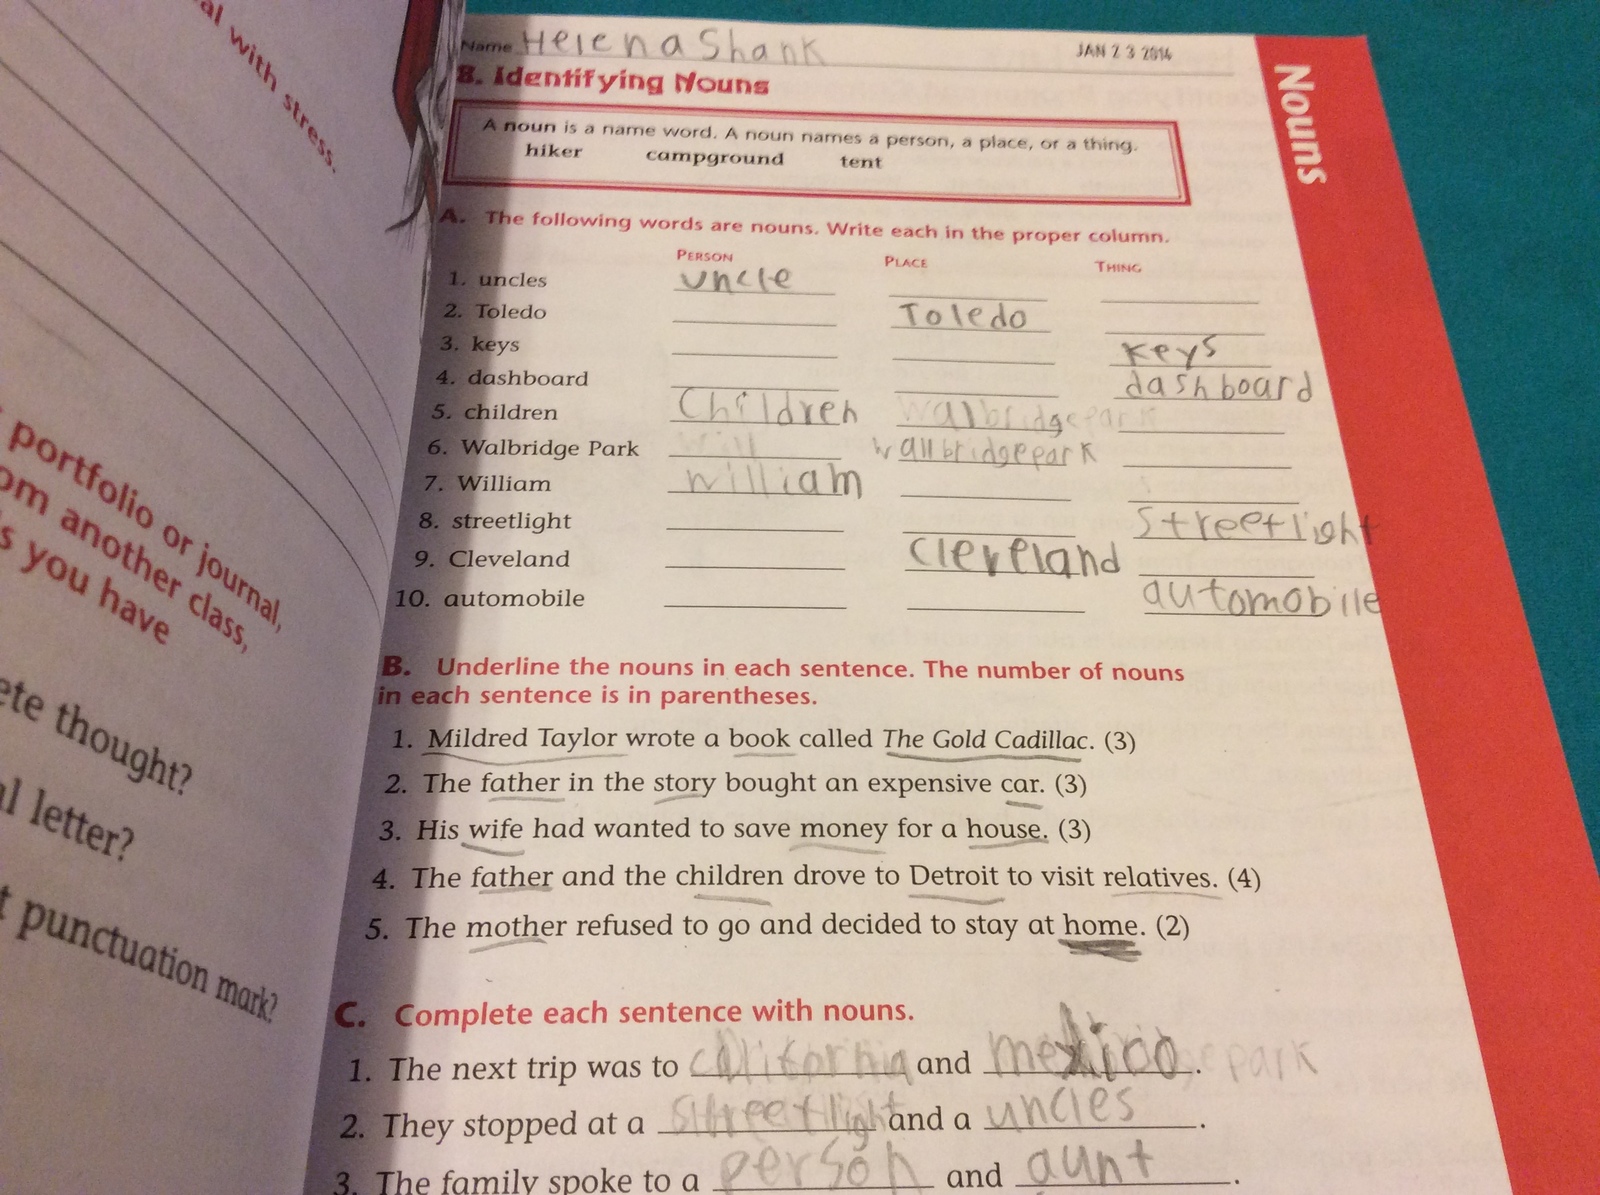 al with stress.
portfolio or journal,
om another class,
s you have
ete thought?
al letter?
t punctuation mark?
Name Helena Shank
JAN 23 2014
B. Identifying Nouns
Nouns
A noun is a name word. A noun names a person, a place, or a thing.
hiker campground tent
A. The following words are nouns. Write each in the proper column.
PERSON PLACE THING
1. uncles uncle
2. Toledo Toledo
3. keys keys
4. dashboard dashboard
5. children Children walbridgepark
6. Walbridge Park will wallbridgepark
7. William william
8. streetlight streetlight
9. Cleveland cleveland
10. automobile automobile
B. Underline the nouns in each sentence. The number of nouns
in each sentence is in parentheses.
1. Mildred Taylor wrote a book called The Gold Cadillac. (3)
2. The father in the story bought an expensive car. (3)
3. His wife had wanted to save money for a house. (3)
4. The father and the children drove to Detroit to visit relatives. (4)
5. The mother refused to go and decided to stay at home. (2)
C. Complete each sentence with nouns.
1. The next trip was to california and mexico park.
2. They stopped at a streetlight and a uncles.
3. The family spoke to a person and aunt.